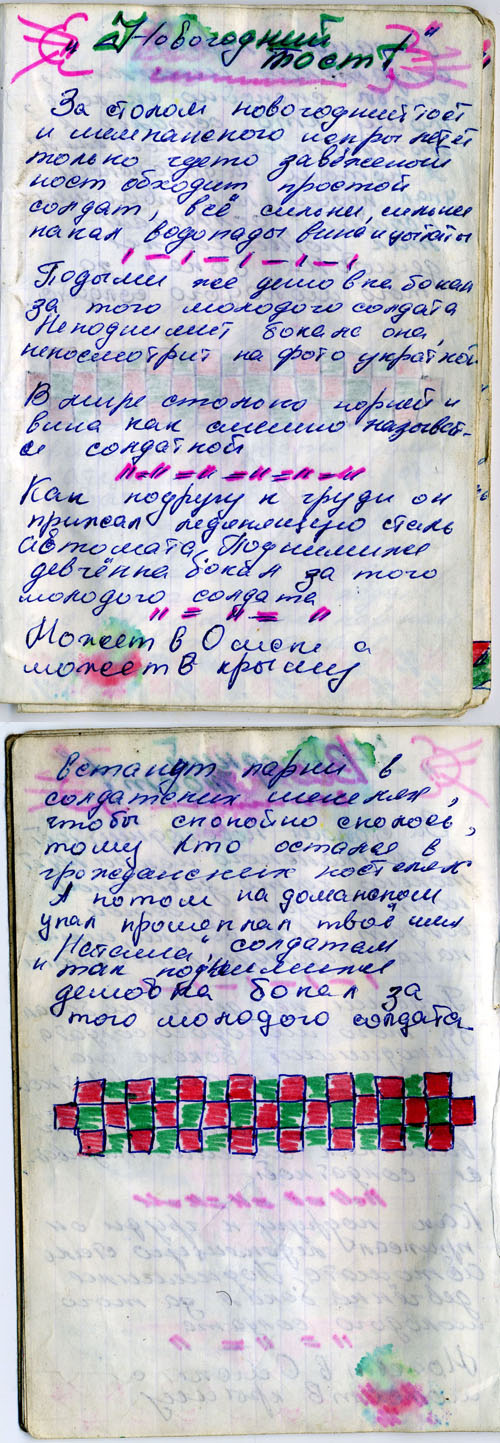 "Новогодний
тост"
За столом новогодний тост
и шемпанского искры летят
только где то завьюженый
пост обходит простой
солдат, всё сильни, сильни
накал водопады вина и цытаты
Подыми же дешовка бокал
за того молодого солдата
Неподнимит бокала она,
непосмотрит на фото украткой
В мире столько парней и
вина как смешно называт-
ся солдаткой
Как подругу к груди он
прижал леденящую сталь
автомата, Поднимиже
девчёнка бокал за того
молодого солдата
Может в Омске а
может в крыму
встанут парни в
солдатских шенелях,
чтобы спокойно спалось,
тому кто остался в
гражданских постелях
А потом на доманском
упал прошептал твоё имя
"Наташа", солдатам
так поднимиже
дешовка бокал за
того молодого солдата